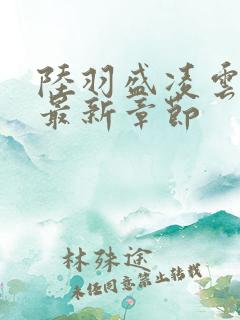 陸羽盛凌雲
最新章節
林殊途
未任同意禁止转载